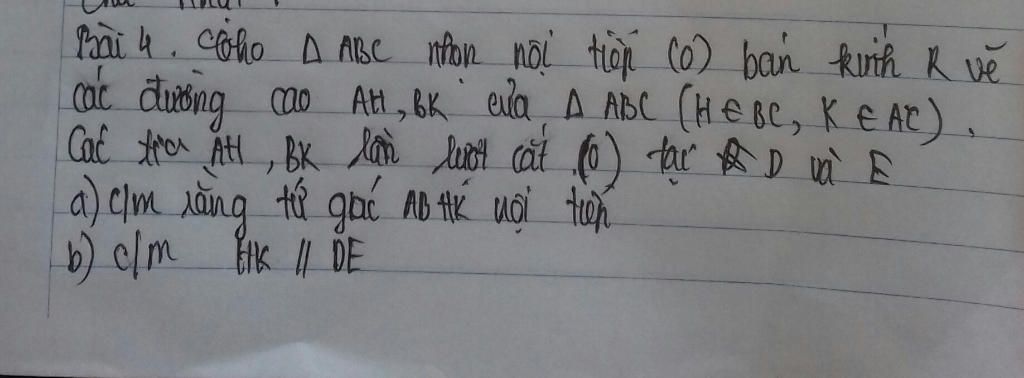 Bài 4. Cho Δ ABC nhọn nội tiếp (O) bán kính R vẽ
các đường cao AH, BK của Δ ABC (H ∈ BC, K ∈ AC).
Các tia AH, BK lần lượt cắt (O) tại D và E
a) c/m rằng tứ giác ABHK nội tiếp
b) c/m HK // DE